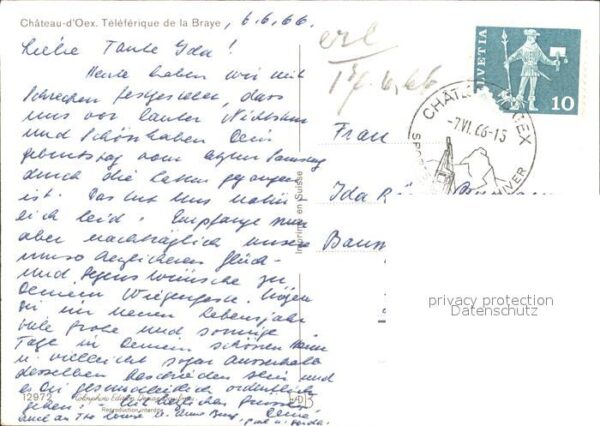 Château-d'Oex. Téléférique de la Braye, 6.6.66.
Liebe Tante Ida!
Heute haben wir mit
Schrecken festgestellt, dass
uns vor lauter Nichtstun
und Schönhaben Dein
Geburtstag vom Samstag
durch die Latten gegangen
ist. Das tut uns
leid. Empfange nun
aber nachträglich unsere
umso herzlicheren Glück-
und Segenswünsche zu
Deinem Wiegenfeste. Mögen
Dir im neuen Lebensjahr
viele frohe und sonnige
Tage in Deinem schönen Heim
u. vielleicht sogar ausserhalb
desselben beschieden sein und
es Dir gesundheitlich ordentlich
gehen! Mit herzlichen Grüssen
12972
Reproduction interdite
Imprimé en Suisse
erl
17.6.66
HELVETIA
10
CHÂTEAU-D'OEX
-7.VI.66-15
HIVER
Frau
Ida
privacy protection
Datenschutz